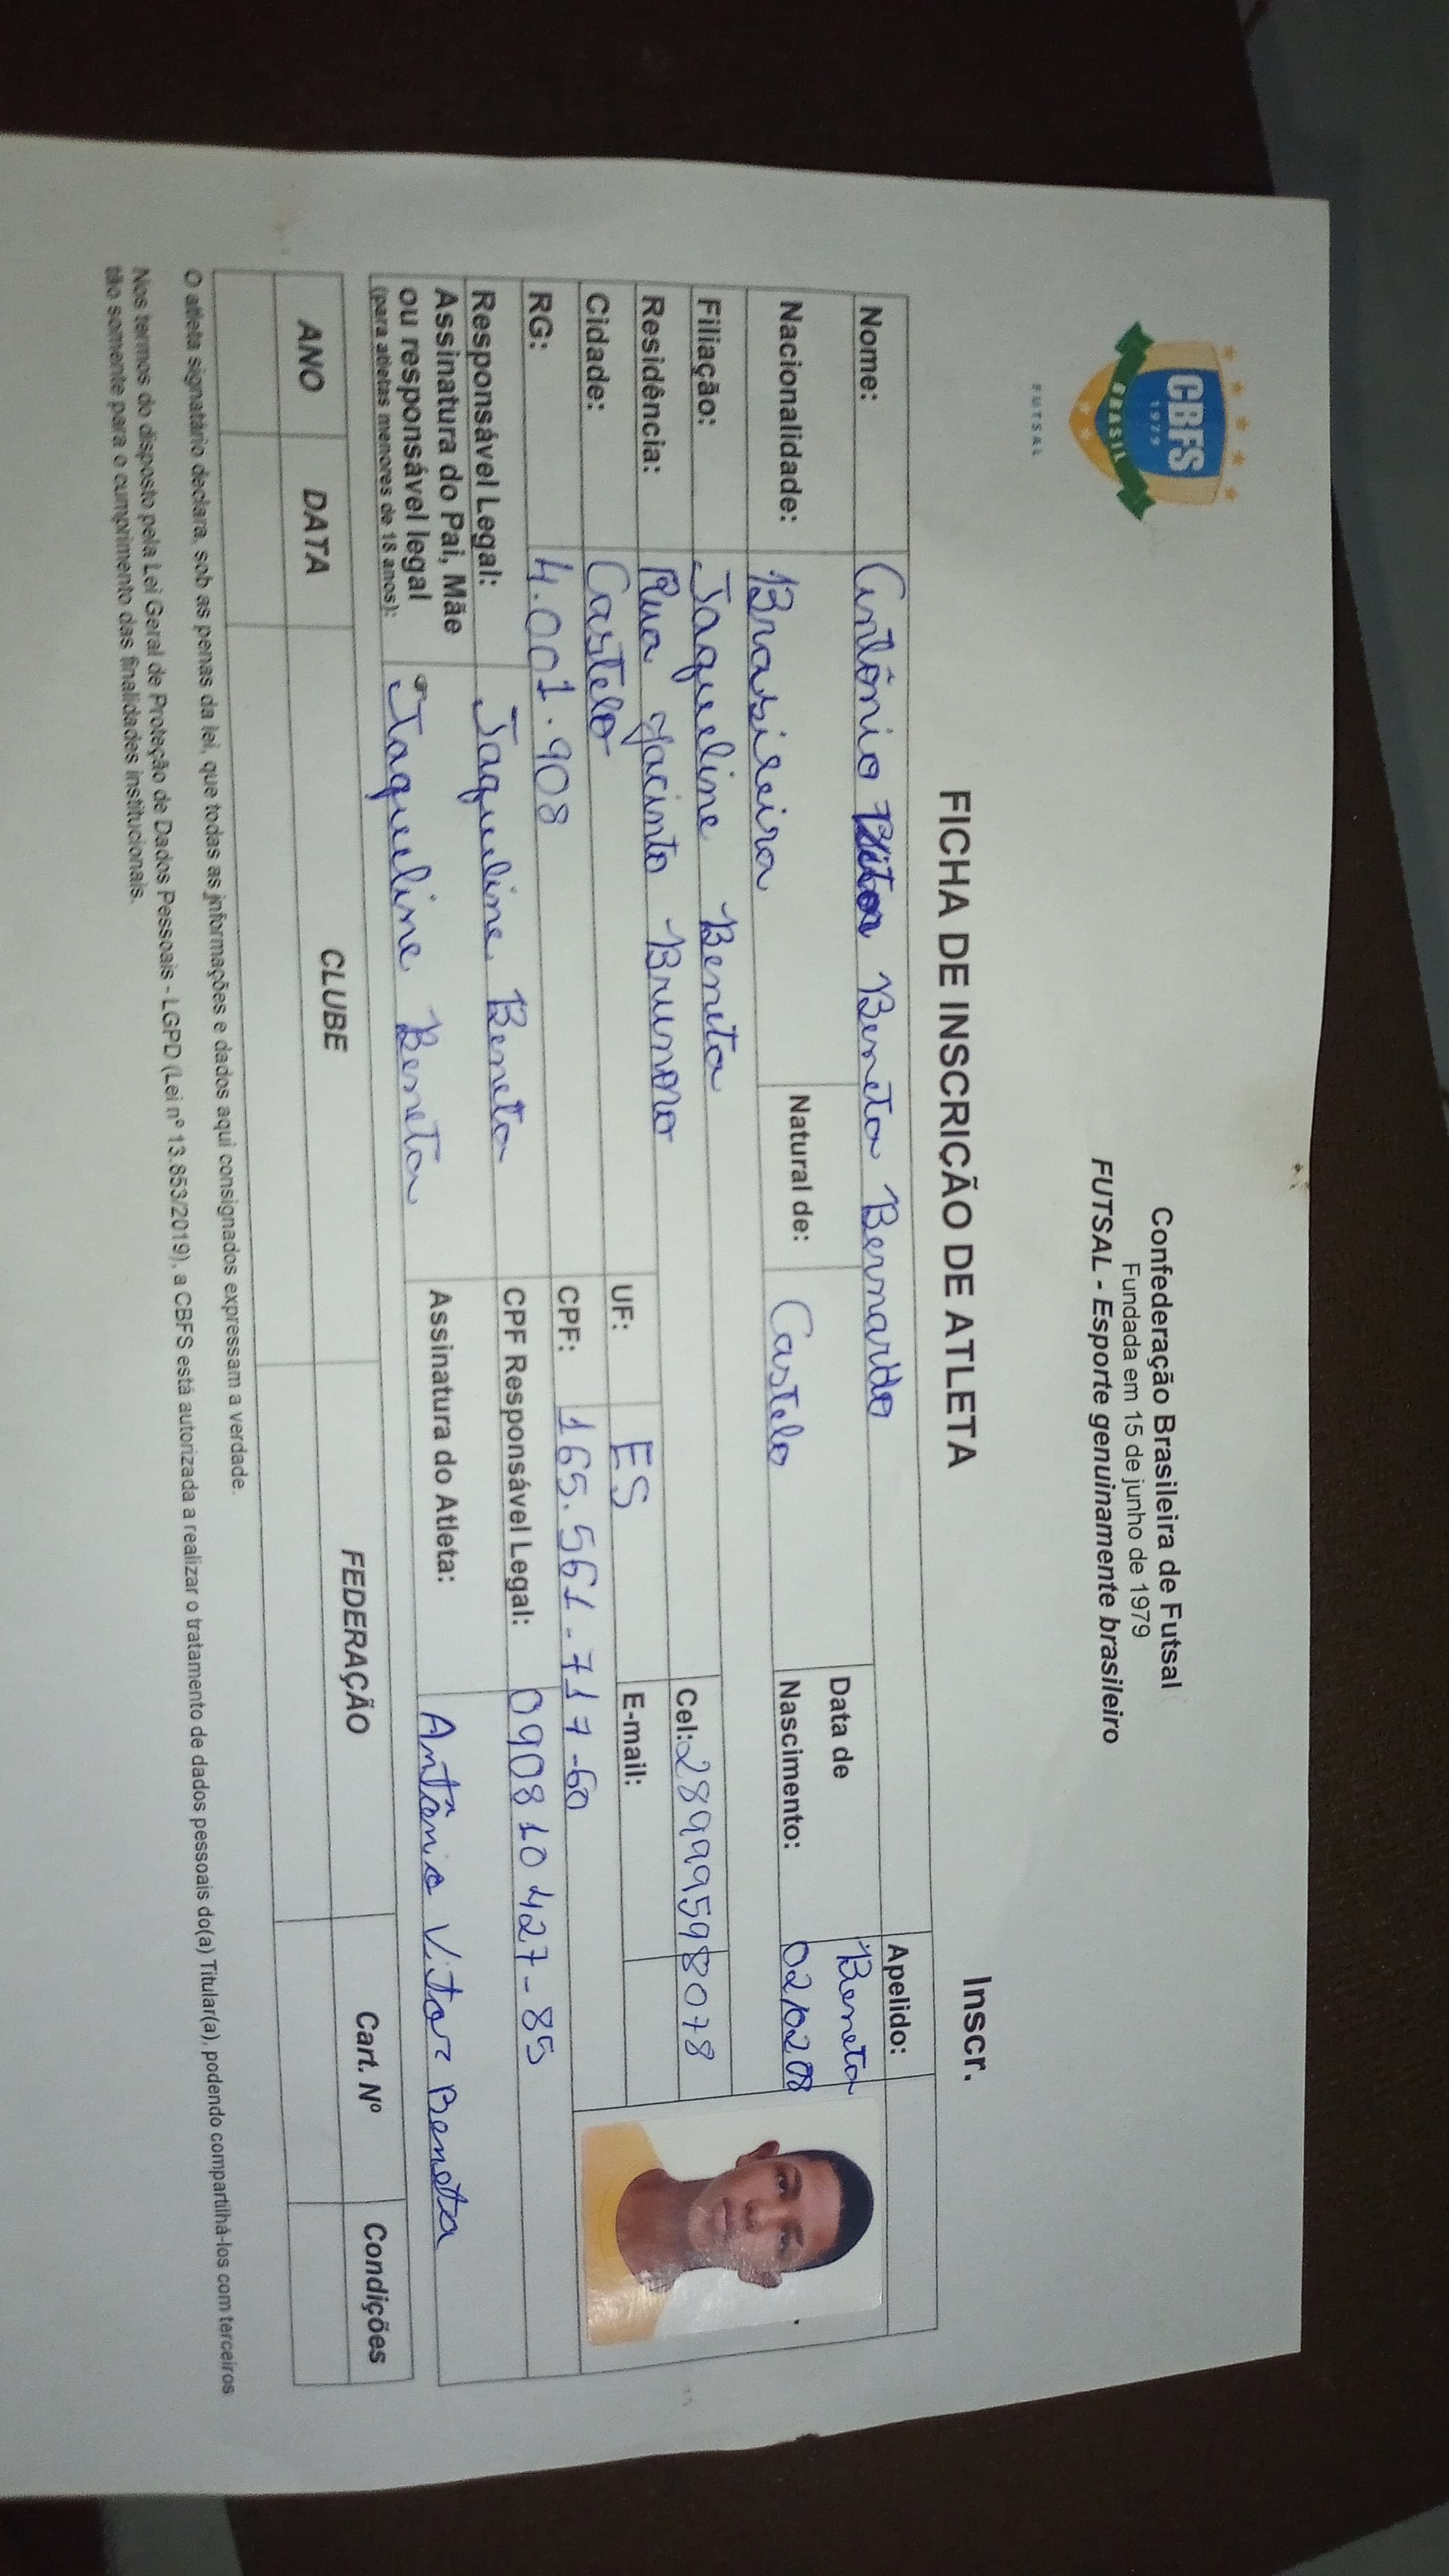 CBFS
1979
BRASIL
FUTSAL
Confederação Brasileira de Futsal
Fundada em 15 de junho de 1979
FUTSAL - Esporte genuinamente brasileiro
FICHA DE INSCRIÇÃO DE ATLETA Inscr.
Nome: Antônio Vitor Beneta Bernardo Apelido: Beneta
Nacionalidade: Brasileira Natural de: Castelo Data de Nascimento: 02/02/08
Filiação: Jaqueline Beneta
Residência: Rua Jacinto Brunoro Cel: 28999598078
Cidade: Castelo UF: ES E-mail:
RG: 4.001.908 CPF: 165.561-717-60
Responsável Legal: Jaqueline Beneta CPF Responsável Legal: 090810427-85
Assinatura do Pai, Mãe
ou responsável legal
(para atletas menores de 18 anos): Jaqueline Beneta Assinatura do Atleta: Antônio Vitor Beneta
ANO DATA CLUBE FEDERAÇÃO Cart. Nº Condições
O atleta signatário declara, sob as penas da lei, que todas as informações e dados aqui consignados expressam a verdade.
Nos termos do disposto pela Lei Geral de Proteção de Dados Pessoais - LGPD (Lei nº 13.853/2019), a CBFS está autorizada a realizar o tratamento de dados pessoais do(a) Titular(a), podendo compartilhá-los com terceiros
tão somente para o cumprimento das finalidades institucionais.